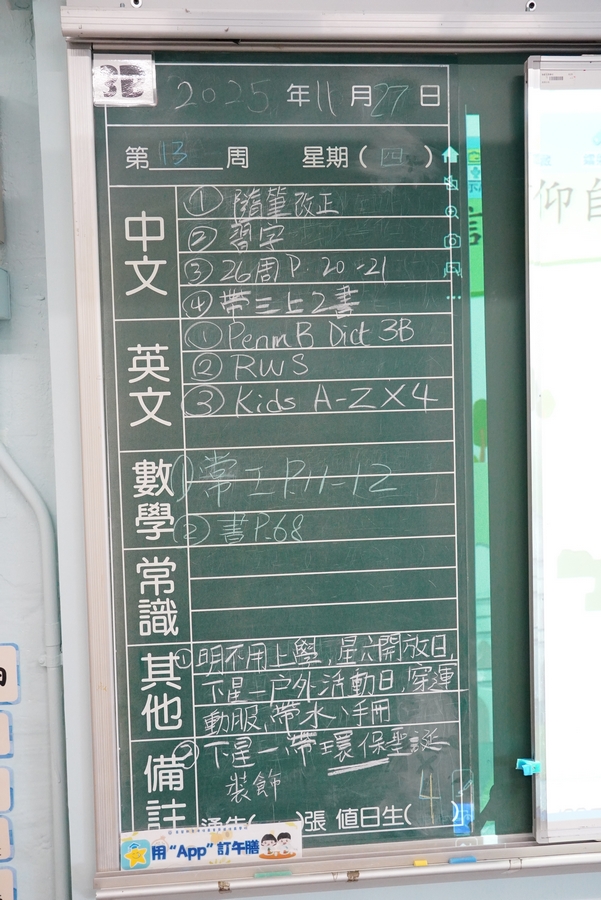 2025年11月27日
第13周 星期(四)
中文
① 隨筆改正
② 習字
③ 26周 P. 20-21
④ 帶三上2書
英文
① Penm B Dict 3B
② RWS
③ Kids A-Z X4
數學
① 常工 P.11-12
② 書 P.68
常識
其他
① 明不用上學,星六開放日,
下星一戶外活動日,穿運
動服、帶水、手冊
備註
② 下星一帶環保聖誕
裝飾
通告( )張 值日生(4 )
用“App”訂午膳
仰自